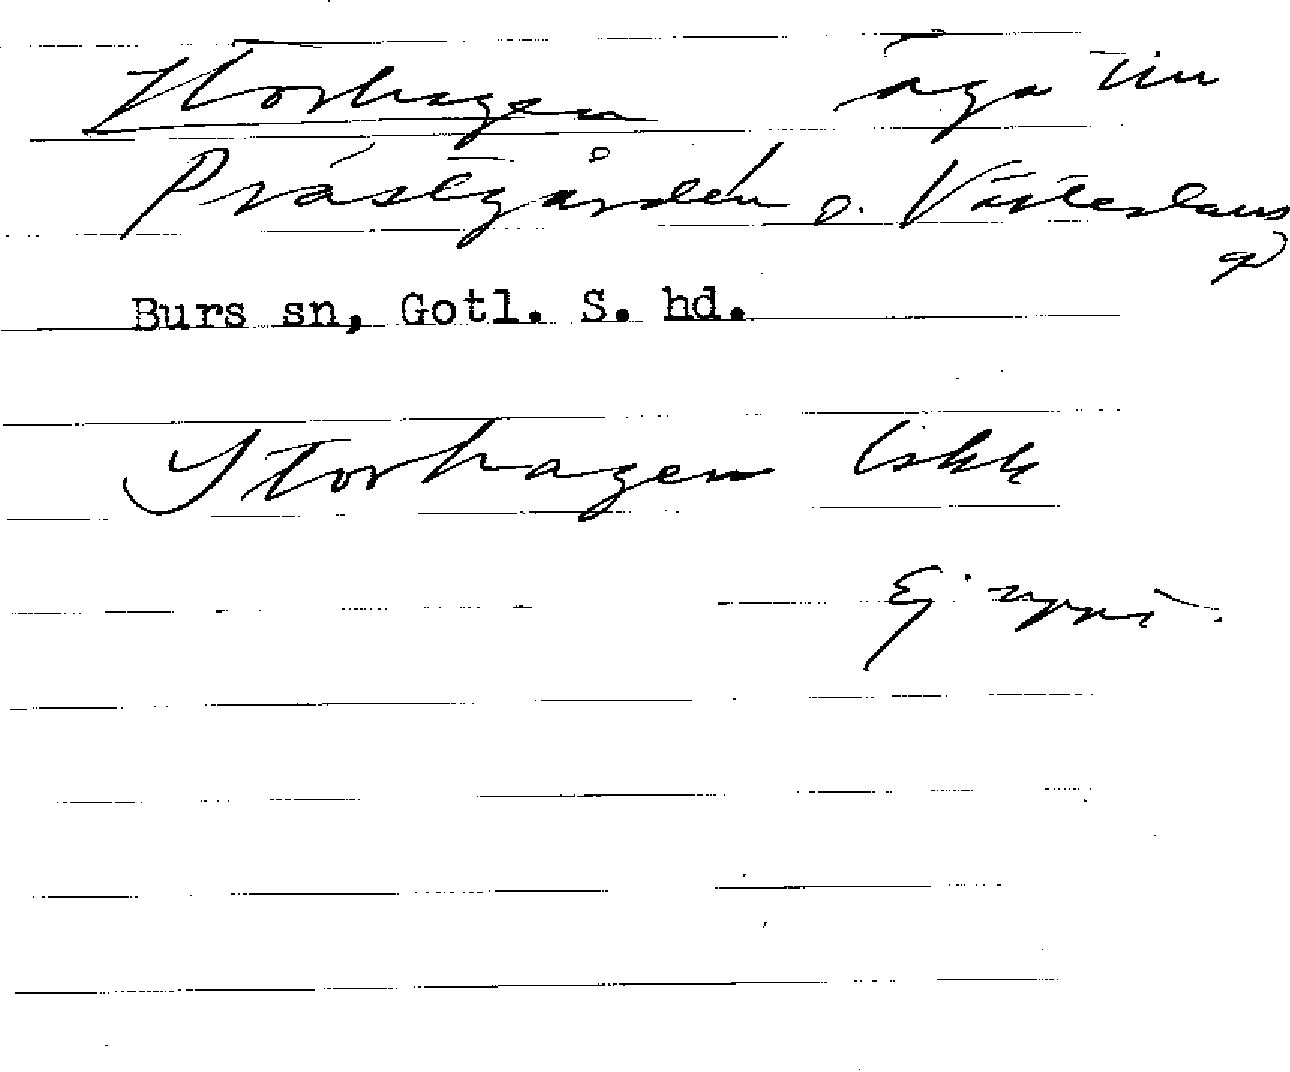 Storhagen äga till
Prästgården o. Västerlaus
gd
Burs sn, Gotl. S. hd.
Storhagen
Ej uppt.